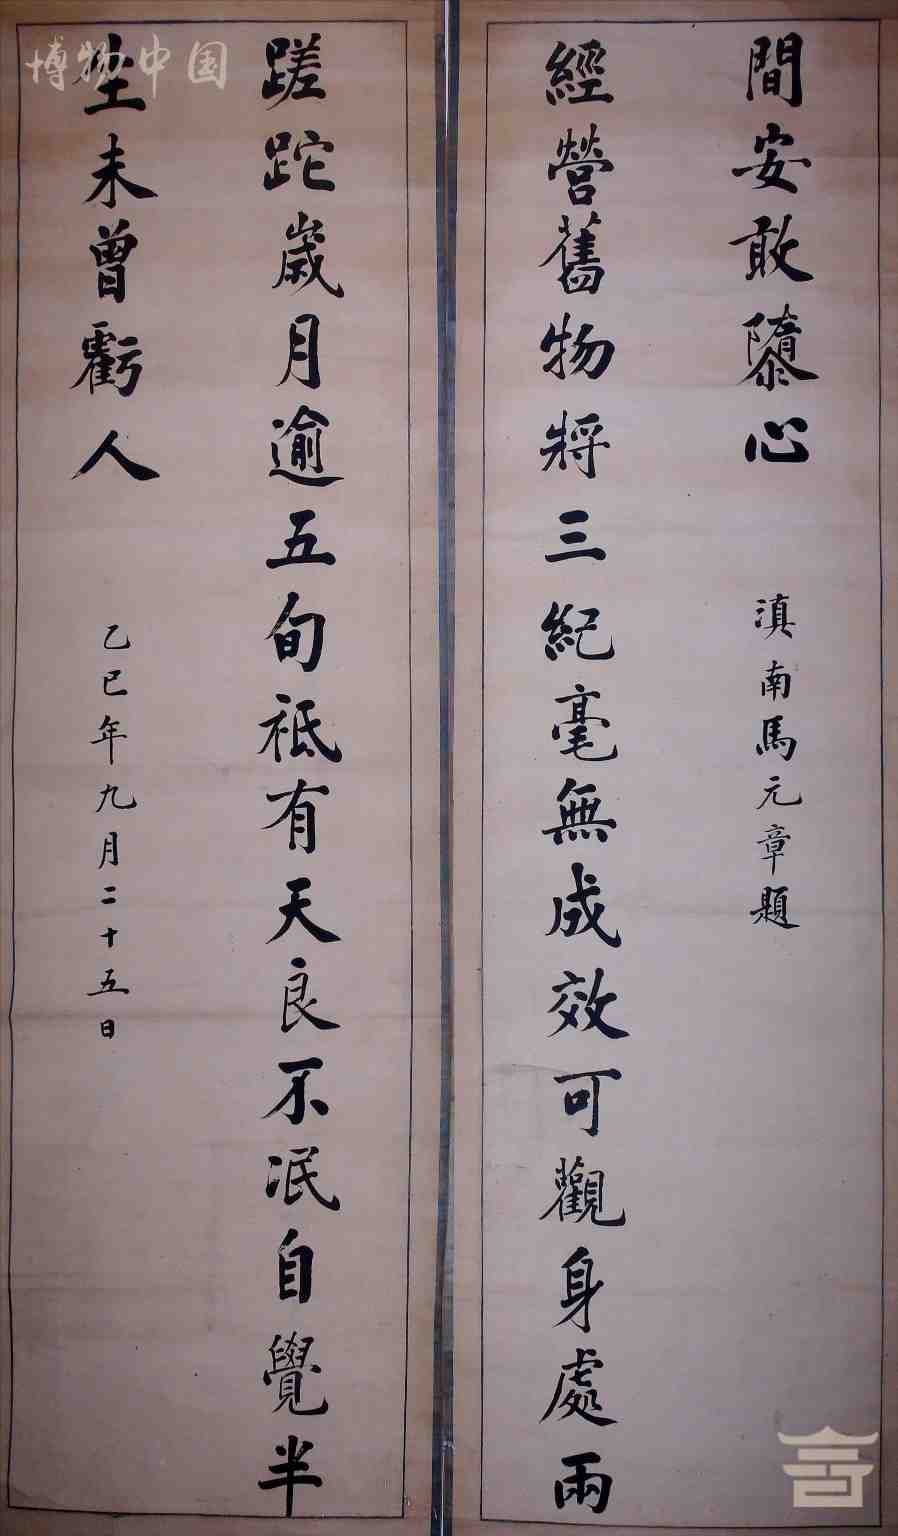 蹉跎歲月逾五旬祗有天良不泯自覺半
生未曾虧人
乙巳年九月二十五日
經營舊物將三紀毫無成效可觀身處兩
間安敢隳心
滇南馬元章題
博物中国